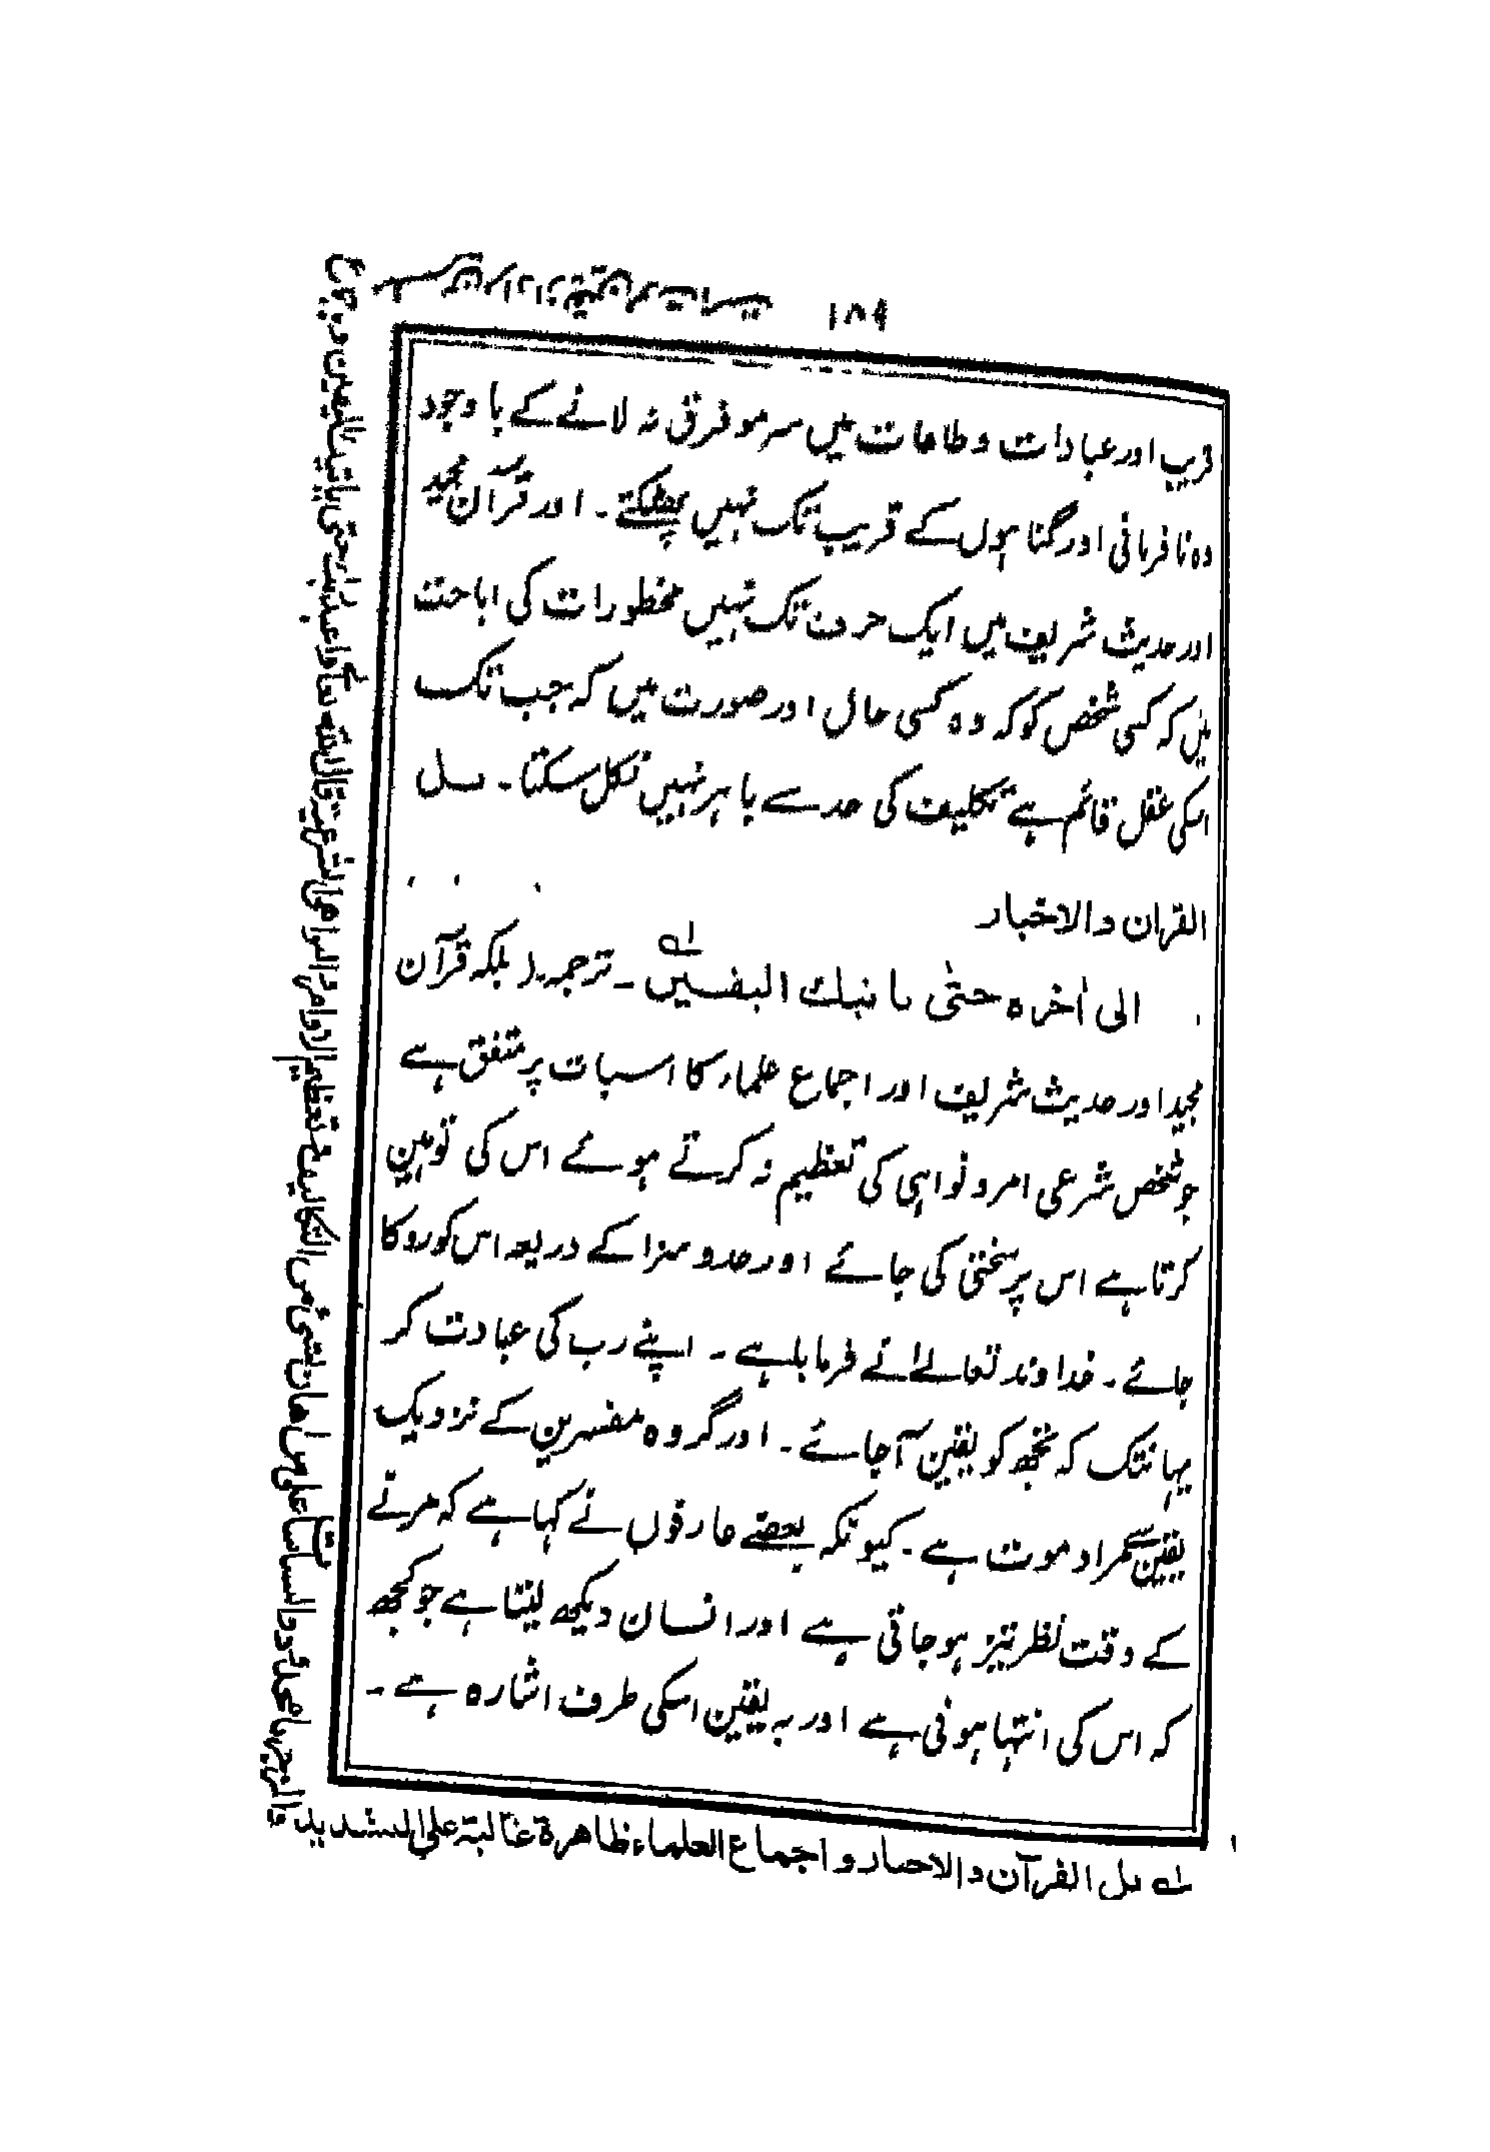 ۱۸۹
قریب اور عبادات و طاعات میں سرمو فرق نہ لانے کے با وجود
وہ نا فرمانی اور گناہوں کے قریب تک نہیں پھٹکتے ۔ اور قرآن مجید
اور حدیث شریف میں ایک حرف تک نہیں محظورات کی اباحت
میں کہ کسی شخص کو کہ وہ کسی حال اور صورت میں کہ جب تک
اسکی عقل قائم ہے تکلیف کی حد سے باہر نہیں نکل سکتا ۔ بل
القران والاخبار
الی اٰخرہ حتیٰ یا تیک الیقین ۔ ترجمہ ( بلکہ قرآن
مجید اور حدیث شریف اور اجماع علماء کا اسبات پر متفق ہے
جو شخص شرعی امر و نواہی کی تعظیم نہ کرتے ہوئے اس کی توہین
کرتا ہے اس پر سختی کی جائے اور حد و سزا کے ذریعہ اس کو روکا
جائے ۔ خداوند تعالےٰ نے فرمایا ہے ۔ اپنے رب کی عبادت کر
یہانتک کہ تجھ کو یقین آ جائے ۔ اور گروہ مفسرین کے نزدیک
یقین سے مراد موت ہے ۔ کیونکہ بعضے عارفوں نے کہا ہے کہ مرتے
کے وقت نظر تیز ہو جاتی ہے اور انسان دیکھ لیتا ہے جو کچھ
کہ اس کی انتہا ہوتی ہے اور یہ یقین اسکی طرف اشارہ ہے ۔
لہ بل القرآن والاخبار و اجماع العلماء ظاهرة غالبة علی التشدید